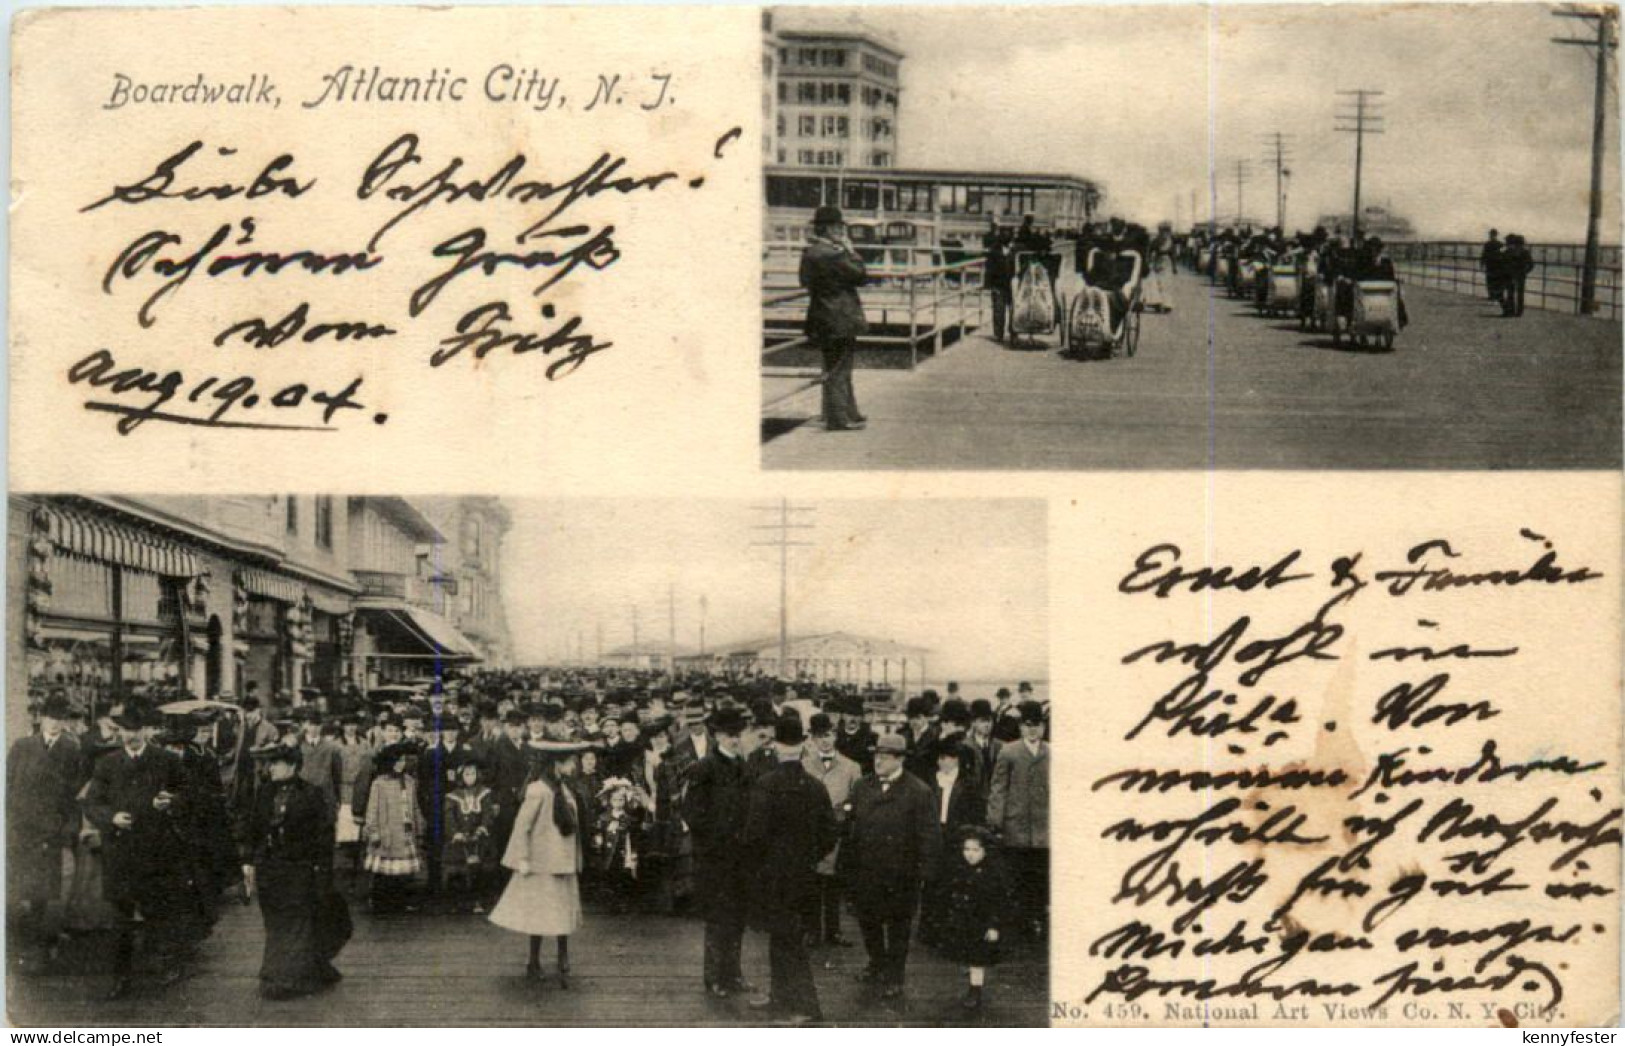 Boardwalk, Atlantic City, N. J.
Liebe Schwester!
Schönen Gruß
vom Fritz
Aug 19. 04.
Ernst & Familie
wohl in
Phila. Von
meinen Kindern
erhielt ich Nachricht
daß sie gut in
Michigan ange-
kommen sind.
No. 459. National Art Views Co. N. Y. City.
www.delcampe.net
kennyfester